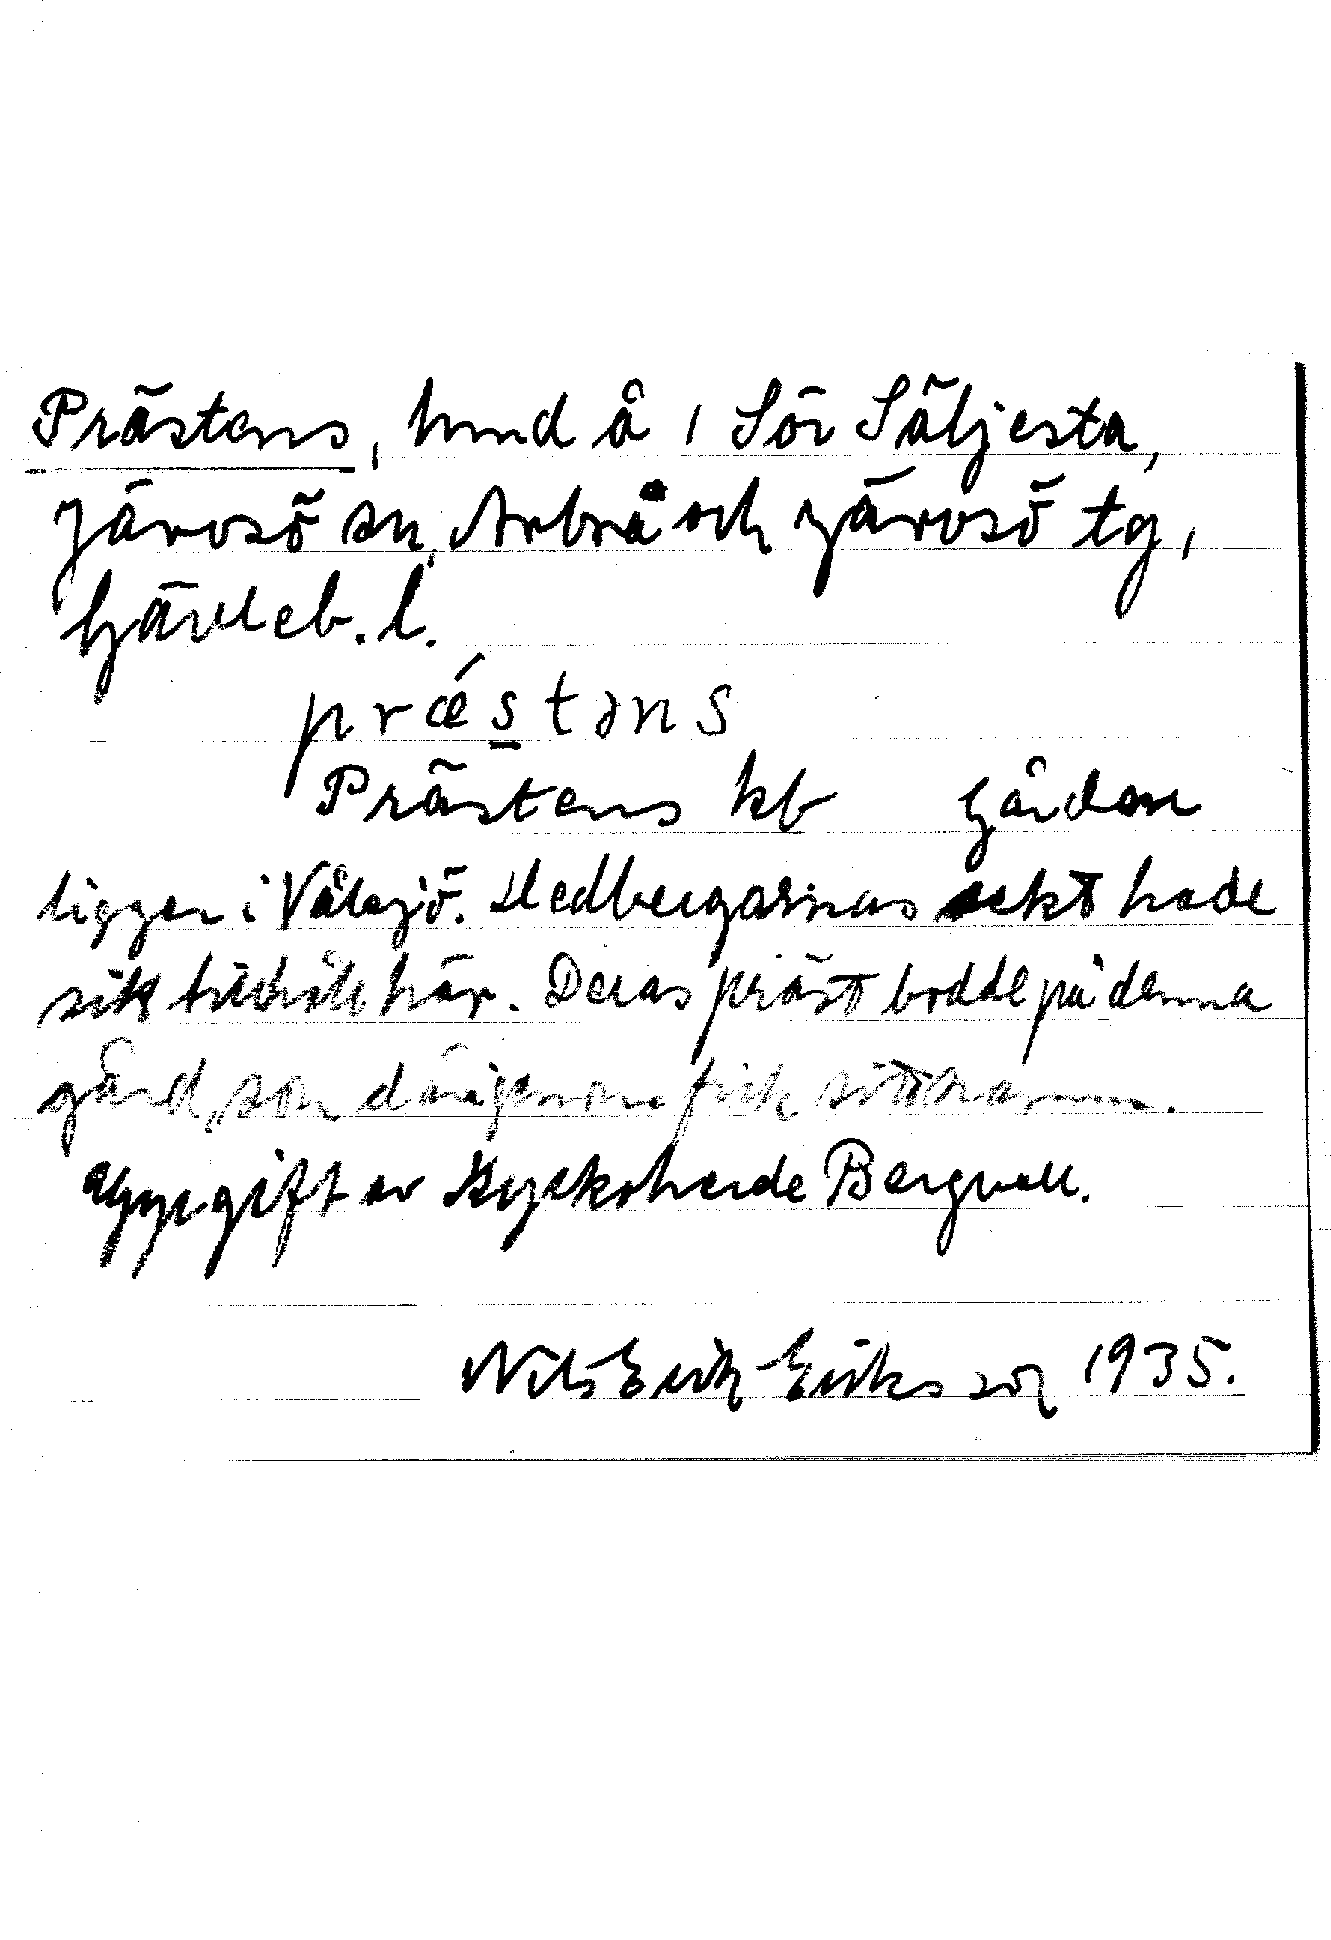 Prästens, hmd å 1 Sör Säljesta,
Järvsö sn, Arbrå och Järvsö tg,
Gävleb. l.
præ´s̲təns
Prästens kb Gården
ligger i Vålsjö. Hedbergarnas sekt hade
sitt tillhåll här. Deras präst bodde på denna
gård, som därigenom fick sitt namn.
Uppgift av Kyrkoherde Bergvall.
Nils Erik Eriksson 1935.